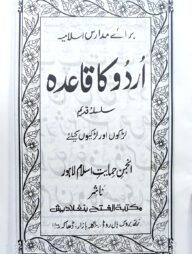 برائے مدارس اسلامیہ
اُردو کا قاعدہ
سلسلۂ قدیم
لڑکوں اور لڑکیوں کیلئے
انجمن حمایت اسلام لاہور
ناشر
مکتبۃ الفتح بنگلادیش